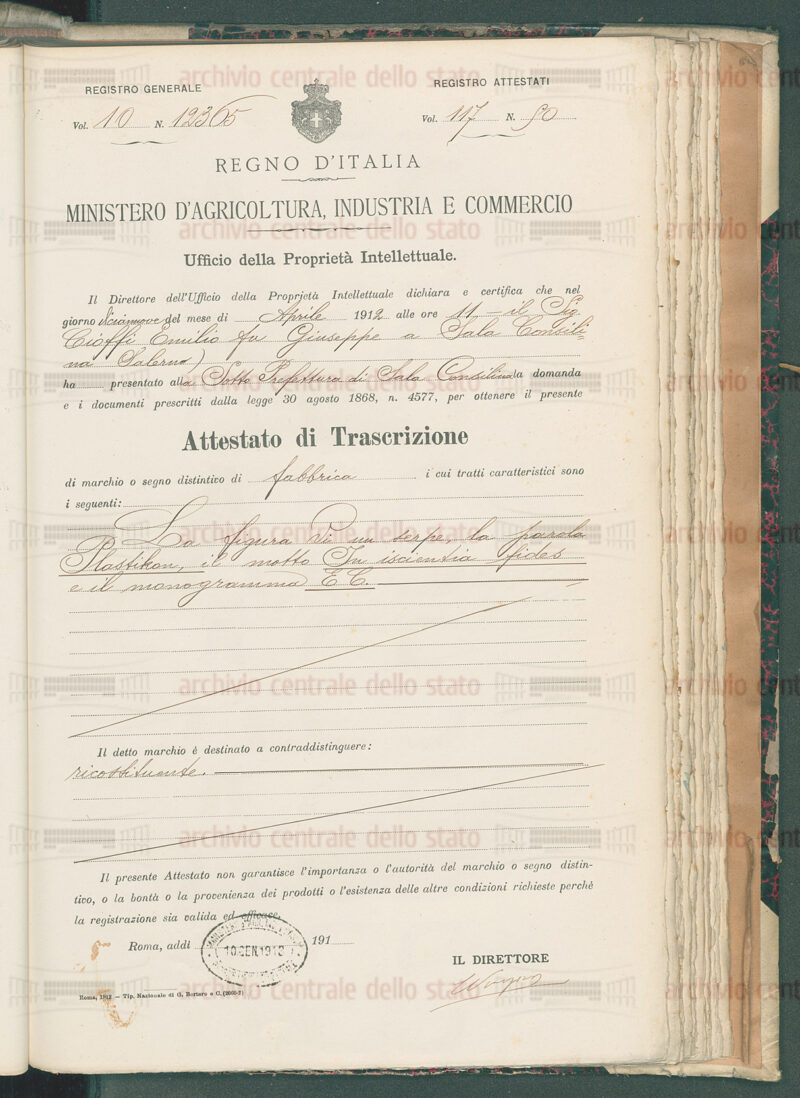 REGISTRO GENERALE
Vol. 10 N. 12365
REGISTRO ATTESTATI
Vol. 117 N. 90
REGNO D'ITALIA
MINISTERO D'AGRICOLTURA, INDUSTRIA E COMMERCIO
Ufficio della Proprietà Intellettuale.
Il Direttore dell'Ufficio della Proprietà Intellettuale dichiara e certifica che nel
giorno diciannove del mese di Aprile 1912 alle ore 11 - il Sig
Cioffi Emilio fu Giuseppe a Sala Consili-
na Salerno)
ha presentato alla Sotto Prefettura di Sala Consilina la domanda
e i documenti prescritti dalla legge 30 agosto 1868, n. 4577, per ottenere il presente
Attestato di Trascrizione
di marchio o segno distintivo di fabbrica i cui tratti caratteristici sono
i seguenti:
La figura di un serpe, la parola
Plastikon, il motto In iscientia fides
e il monogramma E.C.
Il detto marchio è destinato a contraddistinguere:
ricostituente.
Il presente Attestato non garantisce l'importanza o l'autorità del marchio o segno distin-
tivo, o la bontà o la provenienza dei prodotti o l'esistenza delle altre condizioni richieste perchè
la registrazione sia valida ed efficace.
Roma, addì 191
10 GEN 1913
IL DIRETTORE
Roma, 1912 — Tip. Nazionale di G. Bertero e C.
archivio centrale dello stato